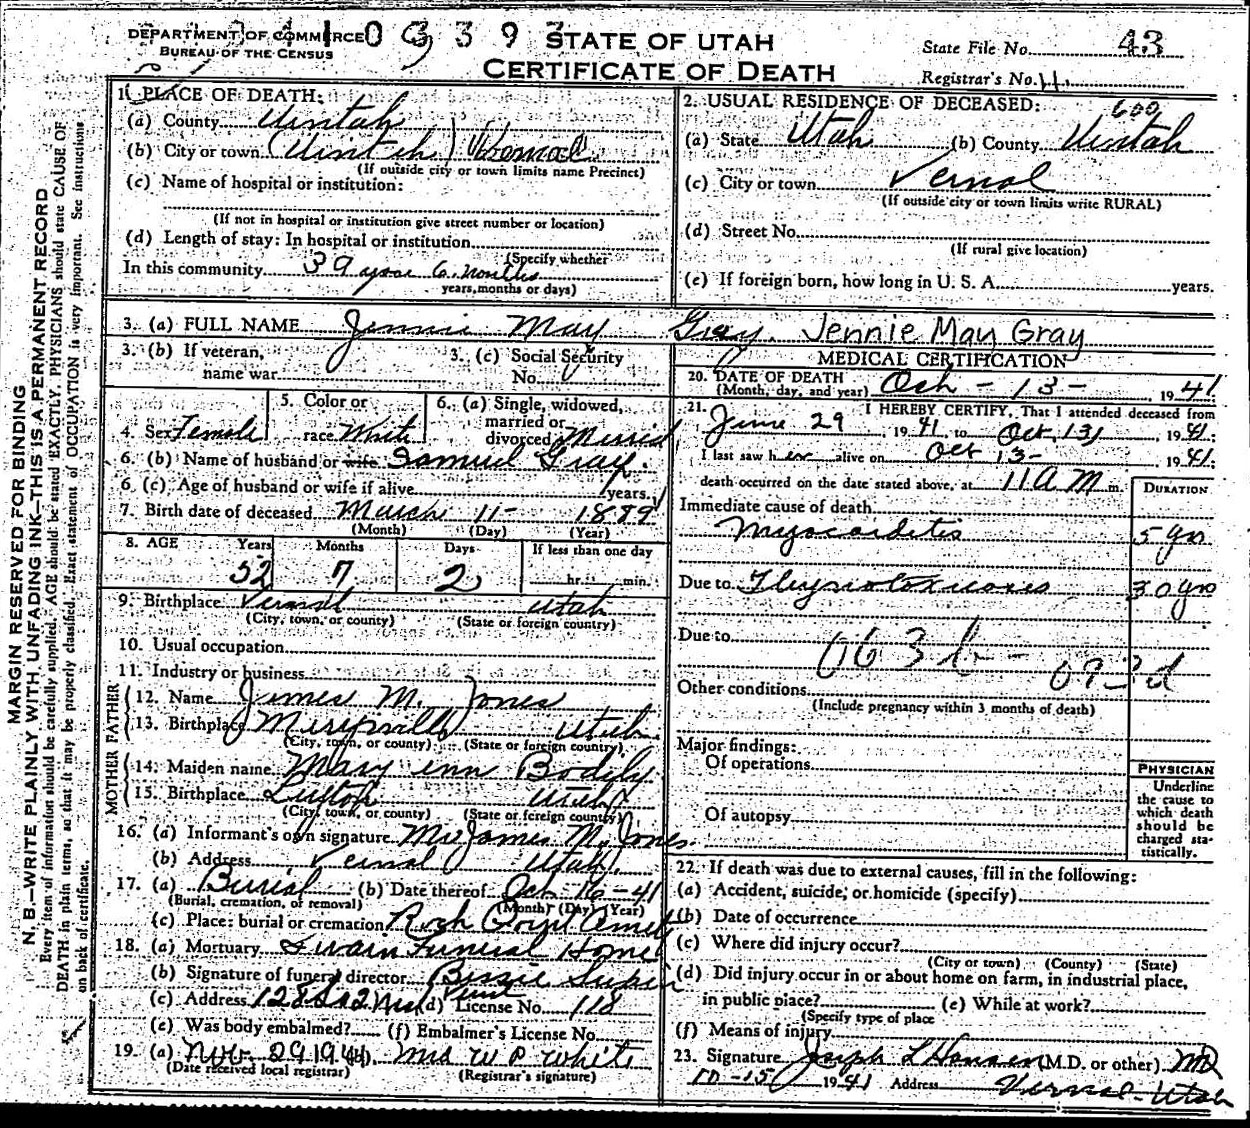 DEPARTMENT OF COMMERCE
BUREAU OF THE CENSUS
STATE OF UTAH
CERTIFICATE OF DEATH
State File No. 43
Registrar's No. 11
1. PLACE OF DEATH:
(a) County Uintah
(b) City or town (Uintah) Vernal
(If outside city or town limits name Precinct)
(c) Name of hospital or institution:
(If not in hospital or institution give street number or location)
(d) Length of stay: In hospital or institution
(Specify whether
In this community 39 years 6 months
years, months or days)
2. USUAL RESIDENCE OF DECEASED: 600
(a) State Utah (b) County Uintah
(c) City or town Vernal
(If outside city or town limits write RURAL)
(d) Street No.
(If rural give location)
(e) If foreign born, how long in U. S. A. years.
3. (a) FULL NAME Jennie May Gray. Jennie May Gray
3. (b) If veteran,
name war
3. (c) Social Security
No.
4. Sex Female
5. Color or
race White
6. (a) Single, widowed,
married or
divorced Married
6. (b) Name of husband or wife Samuel Gray.
6. (c) Age of husband or wife if alive years.
7. Birth date of deceased March 11- 1889
(Month) (Day) (Year)
8. AGE Years Months Days If less than one day
52 7 2 hr. min.
9. Birthplace Vernal Utah
(City, town, or county) (State or foreign country)
10. Usual occupation
11. Industry or business
FATHER
12. Name James M. Jones
13. Birthplace Utah
(City, town, or county) (State or foreign country)
MOTHER
14. Maiden name Mary Ann Bodily
15. Birthplace Utah
(City, town, or county) (State or foreign country)
16. (a) Informant's own signature Mrs James M. Jones.
(b) Address Vernal Utah.
17. (a) Burial (b) Date thereof Oct. 16-41
(Burial, cremation, or removal) (Month) (Day) (Year)
(c) Place: burial or cremation Rock Point
18. (a) Mortuary Swain Funeral Home
(b) Signature of funeral director
(c) Address (d) License No. 118
(e) Was body embalmed? (f) Embalmer's License No.
19. (a) Nov. 29 1941 Mrs W P White
(Date received local registrar) (Registrar's signature)
MEDICAL CERTIFICATION
20. DATE OF DEATH Oct - 13 - 1941
(Month, day, and year)
21. I HEREBY CERTIFY, That I attended deceased from
June 29, 1941 to Oct. 13, 1941;
I last saw her alive on Oct 13- 1941;
death occurred on the date stated above, at 11 A M m.
DURATION
Immediate cause of death
Myocarditis 5 yrs
Due to 30 yrs
Due to
063b - 093d
Other conditions
(Include pregnancy within 3 months of death)
Major findings:
Of operations
Of autopsy
PHYSICIAN
Underline
the cause to
which death
should be
charged sta-
tistically.
22. If death was due to external causes, fill in the following:
(a) Accident, suicide, or homicide (specify)
(b) Date of occurrence
(c) Where did injury occur?
(City or town) (County) (State)
(d) Did injury occur in or about home on farm, in industrial place,
in public place? (e) While at work?
(Specify type of place
(f) Means of injury
23. Signature Joseph L Hansen (M.D. or other) MD
10-15 1941 Address Vernal - Utah
MARGIN RESERVED FOR BINDING
N. B.—WRITE PLAINLY WITH UNFADING INK—THIS IS A PERMANENT RECORD
Every item of information should be carefully supplied. AGE should be stated EXACTLY. PHYSICIANS should state CAUSE OF
DEATH in plain terms, so that it may be properly classified. Exact statement of OCCUPATION is very important. See instructions
on back of certificate.